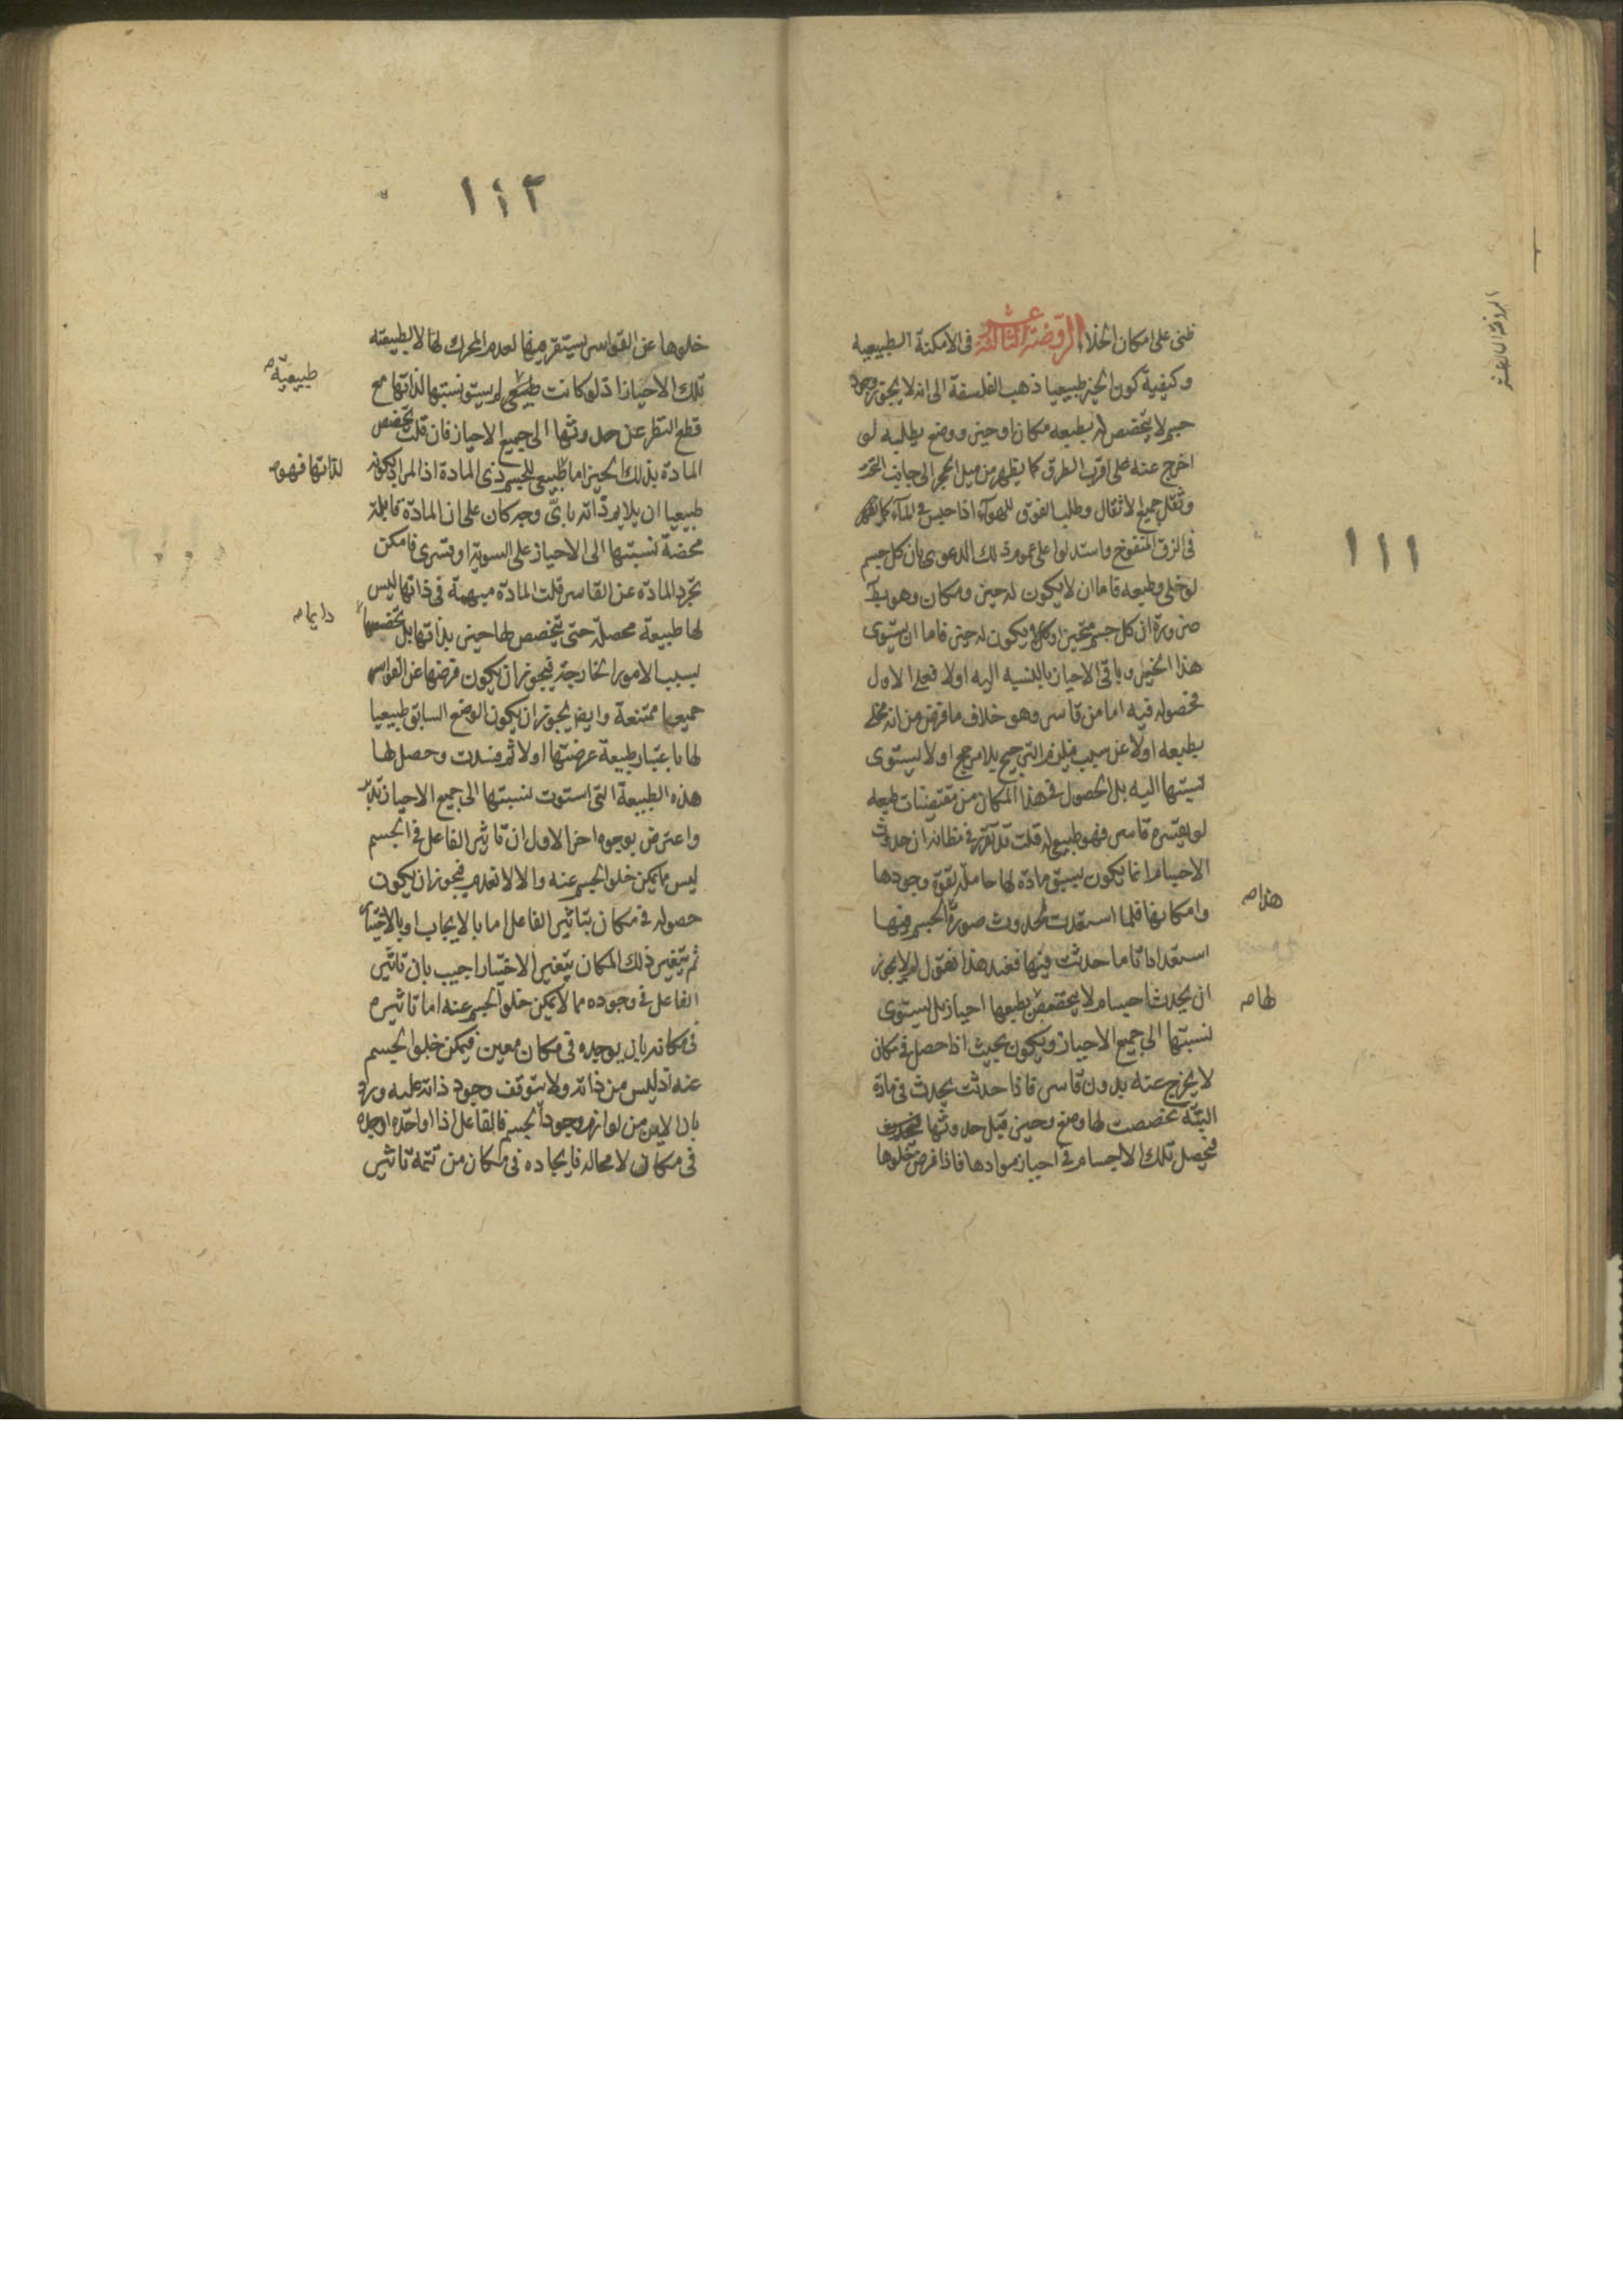 ١١١
ظنى على امكان الخلا الروضة الثالثة عشر فى الامكنة الطبيعيه
وكيفية كون الحيز طبيعيا ذهب الفلسفة الى انه لا يجوز وجود
جسم لا يتخصص له بطبعه مكان او حيز ووضع يطلبه لو
اخرج عنه على اقرب الطرق كما يظهر من ميل الحجر الى جانب التحت
وثقل جميع الاثقال وطلب الفوق للهوآء اذا حبس فى المآء
فى الزق المنفوخ واستدلوا على عموم ذلك الدعوى بان كل جسم
لو خلى وطبعه فاما ان لا يكون له حيز ومكان وهو بط
ضرورة ان كل جسم متحيز او يكون له حيز فاما ان يستوى
هذا الحيز وباقى الاحياز بالنسبه اليه اولا فعلى الاول
فحصوله فيه اما من قاسر وهو خلاف ما فرض من انه مخلى
بطبعه اولا عن سبب فيلزم الترجيح بلا مرجح او لا يستوى
نسبتها اليه بل الحصول فى هذا المكان من مقتضيات طبعه
لو لم يقسره قاسر فهو طبيعى له قلت قد تقرر فى مظانه ان حدوث
الاجسام انما يكون بسبق مادة لها حاملة بقوة وجودها
هذا صه
وامكانها فلما استعدت لحدوث صورة الجسم فيها
استعدادا تاما حدثت فيها فعند هذا فنقول لم لا يجوز
ان يحدث اجسام لا يتخصص بطبعها احياز بل يستوى
لها صه
نسبتها الى جميع الاحياز ويكون بحيث اذا حصل فى مكان
لا يخرج عنه بدون قاسر فاذا حدثت يحدث فى مادة
البتّة تخصصت لها وضع وحيز قبل حدوثها
فيحصل تلك الاجسام فى احياز موادها فاذا فرض خلوها
١١٢
خلوها عن القواسر يستقر فيها لعدم المحرك لها لا لطبيعته
تلك الاحياز اذ لو كانت لم يستو نسبتها لذاتها مع
طبيعيّة صه
قطع النظر عن حدوثها الى جميع الاحياز فان قلت تخصص
المادة بذلك الحيز اما طبيعى للجسم ذى المادة اذ المراد بكونه
لذاتها فهو صه
طبيعيا ان يلايم ذاته باىّ وجه كان على ان المادّة قابلة
محضة نسبتها الى الاحياز على السوية او قسرى فامكن
تجرد المادة عن القاسر قلت المادة مبهمة فى ذاتها ليس
لها طبيعة محصلة حتى يتخصص لها حيز بذاتها بل تخصصها
دايما صه
بسبب الامور الخارجة فيجوز ان يكون فرضها عن القواسر
جميعها ممتنعة وايضا يجوز ان يكون الوضع السابق طبيعيا
لها باعتبار طبيعة عرضتها اولا ثم فسدت وحصل لها
هذه الطبيعة التى استوت نسبتها الى جميع الاحياز تدبر
واعترض بوجوه اخر الاول ان تاثير الفاعل فى الجسم
ليس ما يمكن خلو الجسم عنه والا لانعدم فيجوز ان يكون
حصوله فى مكان بتاثير الفاعل اما بالايجاب او بالاختيار
ثم يتغير ذلك المكان بتغير الاختيار اجيب بان تاثير
الفاعل فى وجوده مما لا يمكن خلو الجسم عنه اما تاثيره
فى مكانه بان يوجده فى مكان معين فيمكن خلو الجسم
عنه اذ ليس من ذاته ولا يتوقف وجود ذاته عليه ورد
بان الاين من لوازم وجود الجسم فالفاعل اذا اوجده اوجده
فى مكان لا محاله فايجاده فى مكان من تتمة تاثير